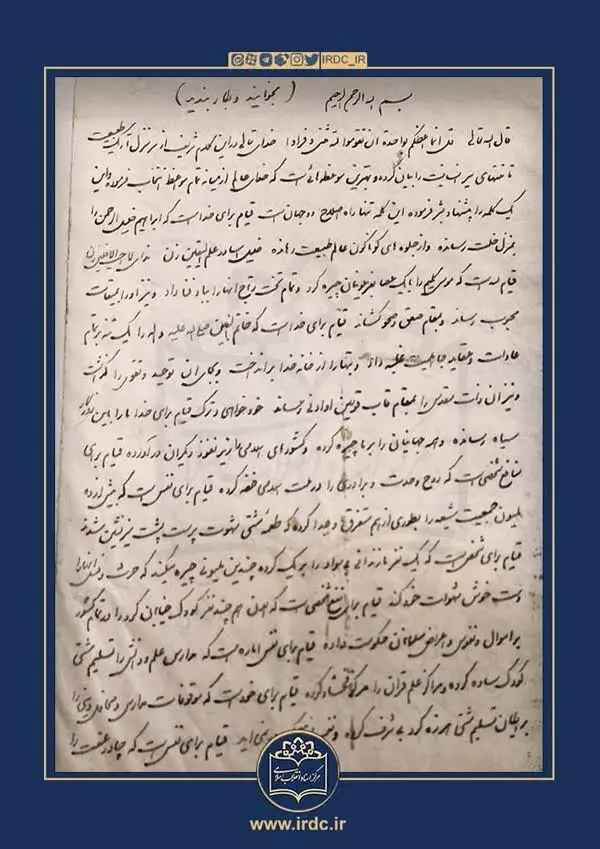 IRDC_IR
بسم الله الرحمن الرحیم (بخوانید و بکار بندید)
قال الله تعالی قل انما اعظکم بواحدة ان تقوموا لله مثنی و فرادا خدای تعالی در این کلام شریف از سر منزل تاریک طبیعت
تا منتهای سیر انسانیت را بیان کرده و بهترین موعظه هائی است که خدای عالم از میانه تمام موعظه انتخاب فرموده و این
یک کلمه را پیشنهاد بشر فرموده این کلمه تنها راه اصلاح دو جهان است قیام برای خدا است که ابراهیم خلیل الرحمن را
بمنزل خلت رسانده و از جلوه های گوناگون عالم طبیعت رهانده خلیل آسا در علم الیقین زن ندای لا احب الافلین زن
قیام لله است که موسی کلیم را با یک عصا بفرعونیان چیره کرد و تمام تخت و تاج آنها را بباد فنا داد و نیز او را بمیقات
محبوب رساند و بمقام صعق و صحو کشاند قیام برای خدا است که خاتم النبیین صلی الله علیه و آله را یک تنه بر تمام
عادات و عقاید جاهلیت غلبه داد و بتها را از خانه خدا برانداخت و بجای آن توحید و تقوی را گذاشت
و نیز آن ذات مقدس را بمقام قاب قوسین او ادنی رساند خودخواهی و ترک قیام برای خدا ما را باین روزگار
سیاه رسانده و همه جهانیان را بر ما چیره کرده و کشورهای اسلامی را زیر نفوذ دیگران درآورده قیام برای
منافع شخصی است که روح وحدت و برادری را در ملت اسلامی خفه کرده قیام برای نفس است که بیش از ده
ملیون جمعیت شیعه را بطوری از هم متفرق و جدا کرده که طعمه مشتی شهوت پرست پشت میز نشین شدند
قیام برای شخص است که یک نفر مازندرانی بیسواد را بر یک گروه چندین ملیونی چیره میکند که حرث و نسل آنها را
دستخوش شهوات خود کند قیام برای نفع شخصی است که الان هم چند نفر کودک خیابان گرد را در تمام کشور
بر اموال و نفوس و اعراض مسلمانان حکومت داده قیام برای نفس اماره است که مدارس علم و دانش را تسلیم مشتی
کودک ساده کرده و مراکز علم قرآن را مرکز فحشاء کرده قیام برای خود است که موقوفات مدارس و محافل دینی را
برایگان تسلیم مشتی هرزه گرد بی شرف کرده و نفس از هیچکس در نمی آید قیام برای نفس است که چادر عفت را
مرکز اسناد انقلاب اسلامی
www.irdc.ir